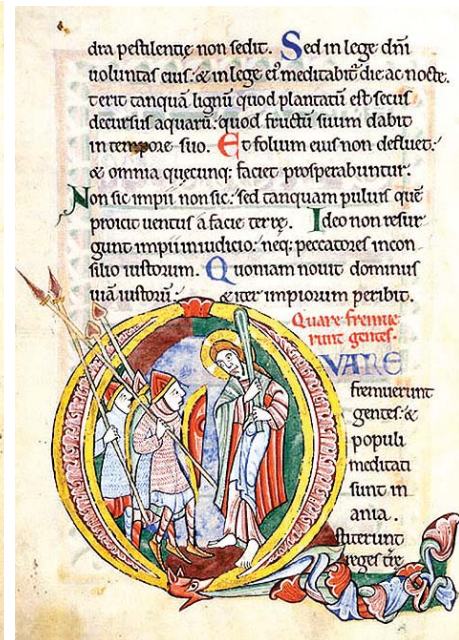 dra pestilentię non sedit. Sed in lege dn̄i
uoluntas eius: & in lege ei᷒ meditabit᷑ die ac nocte.
t erit tanquā lignū quod plantatū est secus
decursus aquarū: quod fructū suum dabit
in tempore suo. Et folium eius non defluet:
& omnia quęcunq; faciet prosperabuntur.
Non sic impii non sic: sed tanquam puluis quē
proicit uentus a facie terrę. Ideo non resur
gunt impii in iudicio: neq; peccatores in con
silio iustorum. Quoniam nouit dominus
uiā iustorū: & iter impiorum peribit.
Quare fremue
runt gentes.
QVARE
fremuerunt
gentes: &
populi
meditati
sunt in
ania.
stiterunt
reges t̄rę